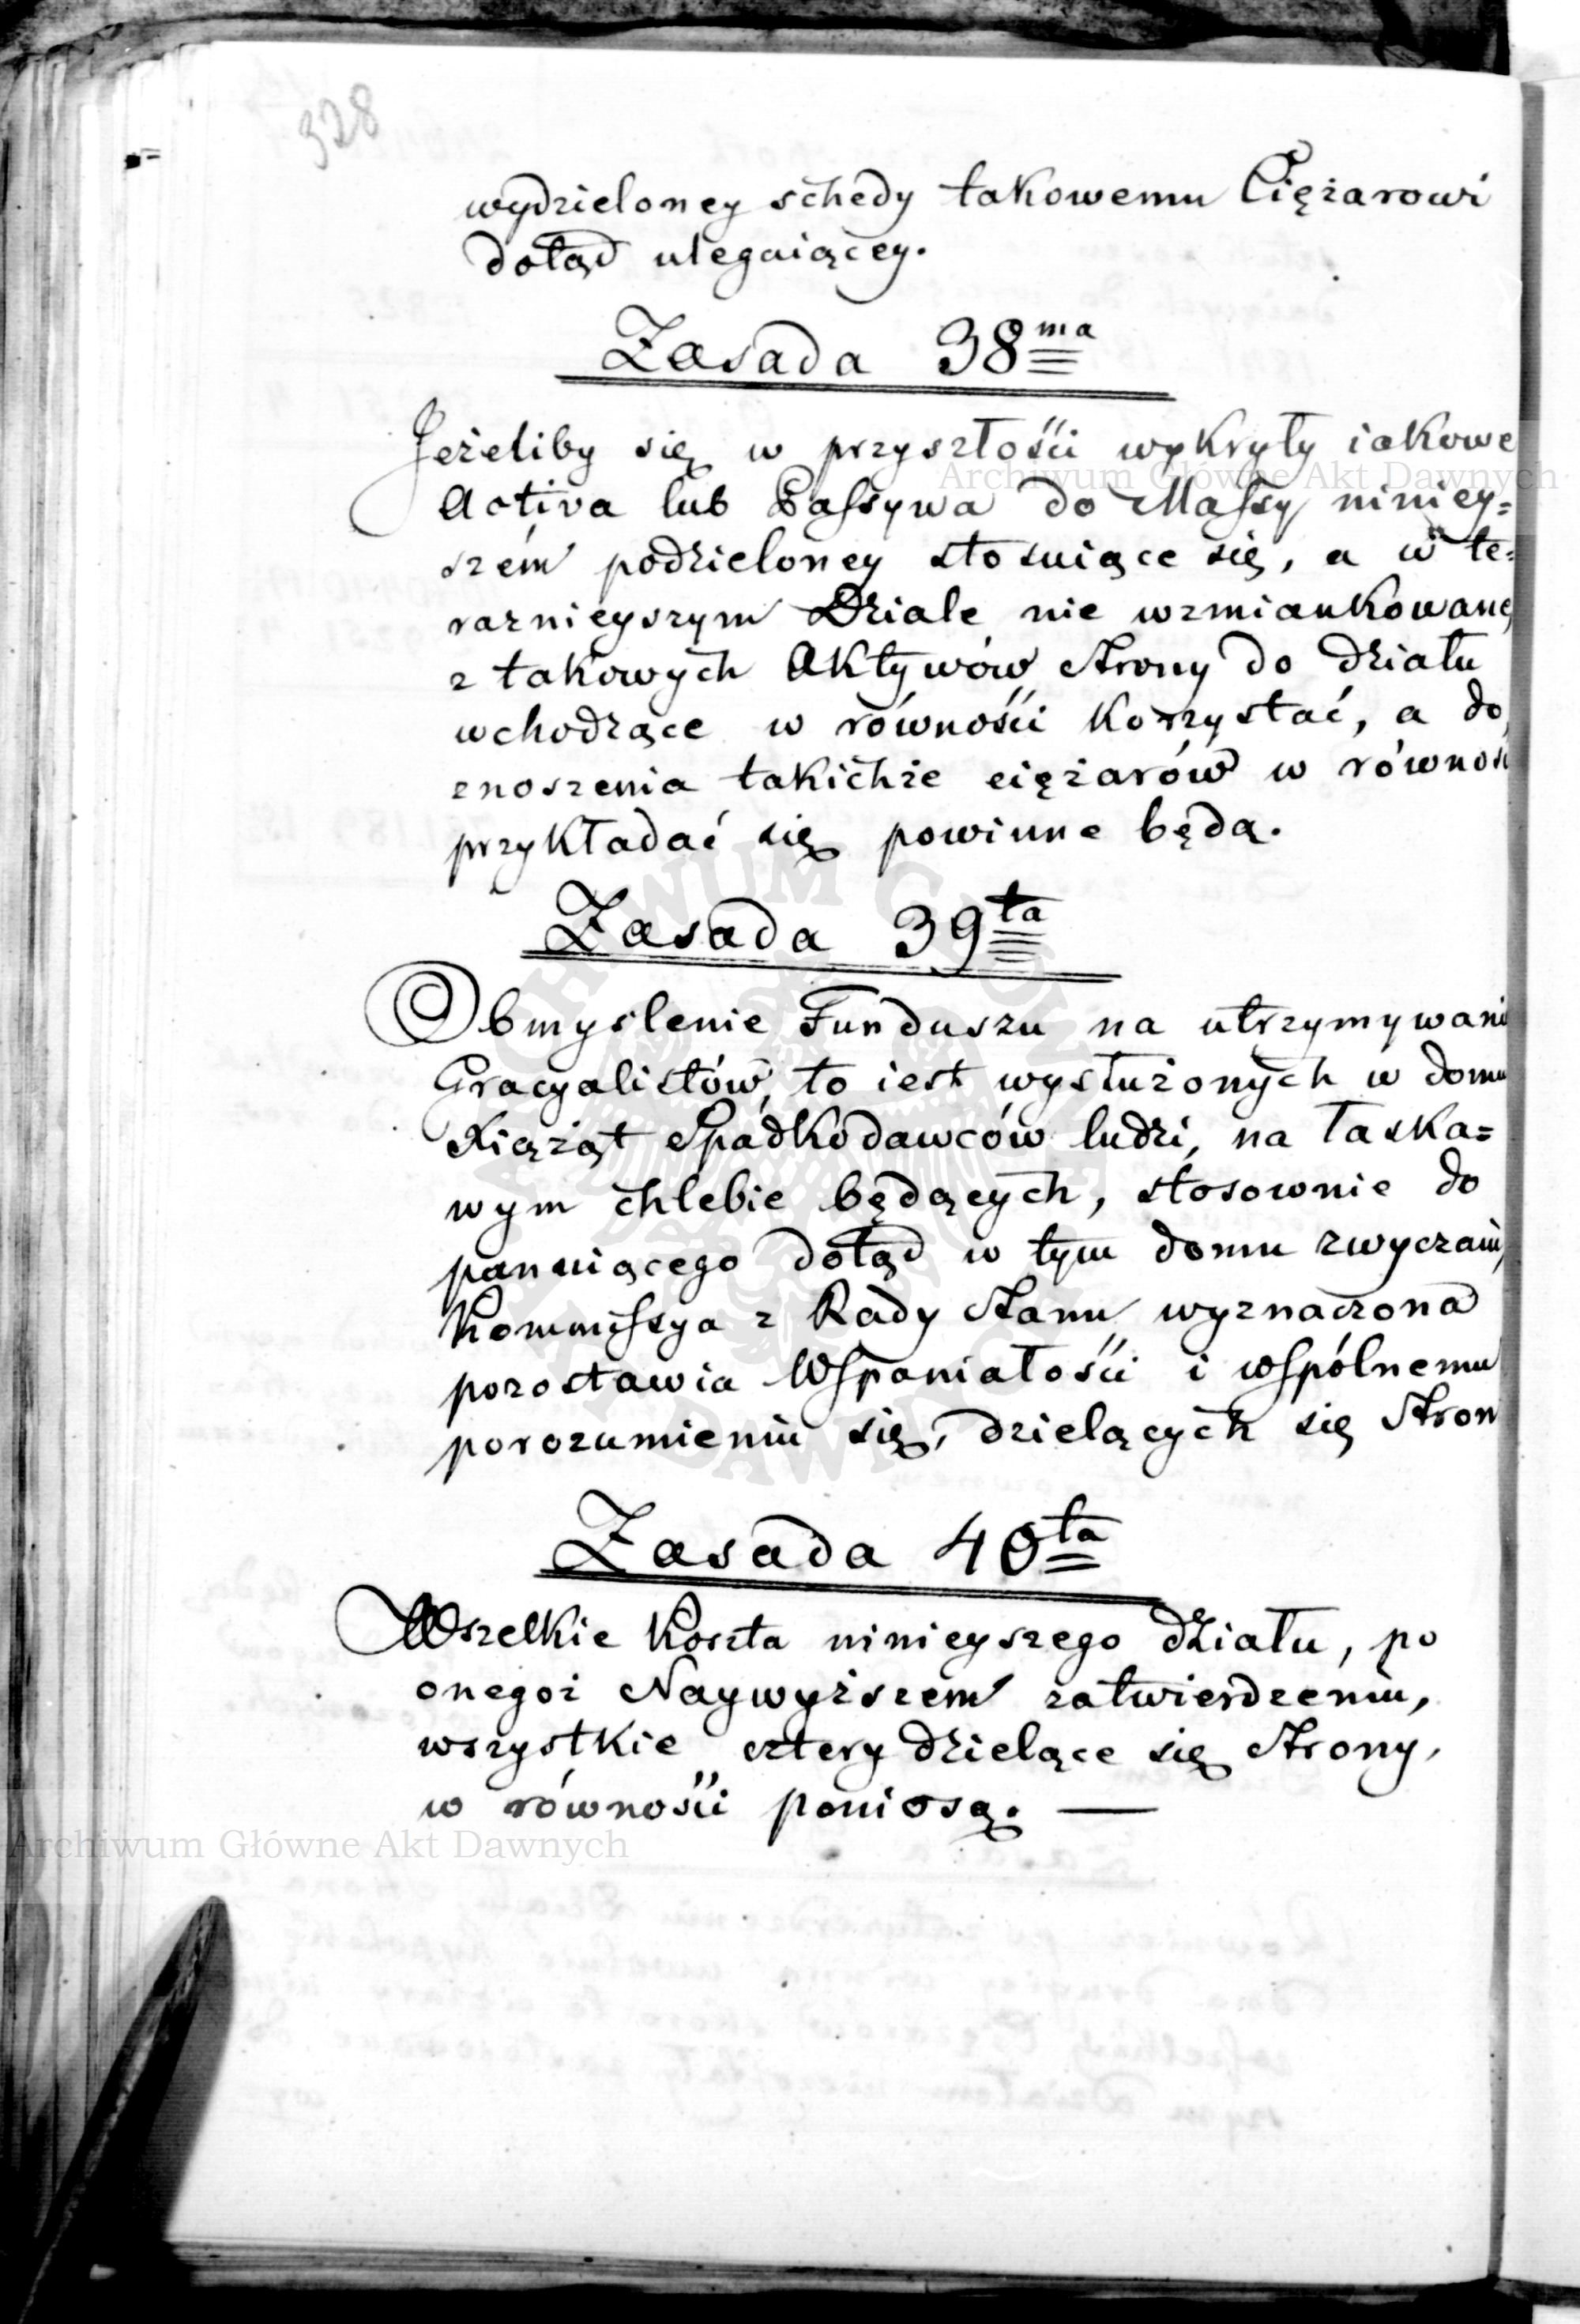 328
wydzieloney schedy takowemu Ciężarowi
dotąd ulegaiącey.
Zasada 38ma
Jeżeliby się w przyszłości wykryły iakowe
Activa lub Passywa do Massy niniey=
szém podzieloney stosuiące się, a w te=
raznieyszym Dziale nie wzmiankowane,
z takowych Aktywów Strony do działu
wchodzące w równości korzystać, a do
znoszenia takichże ciężarów w równości
przykładać się powinne będą.
Zasada 39ta
Obmyslenie Funduszu na utrzymywanie
Gracyalistów, to iest wysłużonych w domu
Xiążąt Spadkodawców ludzi, na łaska=
wym chlebie będących, stosownie do
panuiącego dotąd w tym domu zwyczaiu,
Kommissya z Rady Stanu wyznaczona
pozostawia Wspaniałości i wspólnemu
porozumieniu się, dzielących się Stron
Zasada 40ta
Wszelkie Koszta ninieyszego działu, po
onegoż Naywyższem zatwierdzeniu,
wszystkie cztery dzielące się Strony,
w równości poniosą. —
Archiwum Główne Akt Dawnych
Archiwum Główne Akt Dawnych